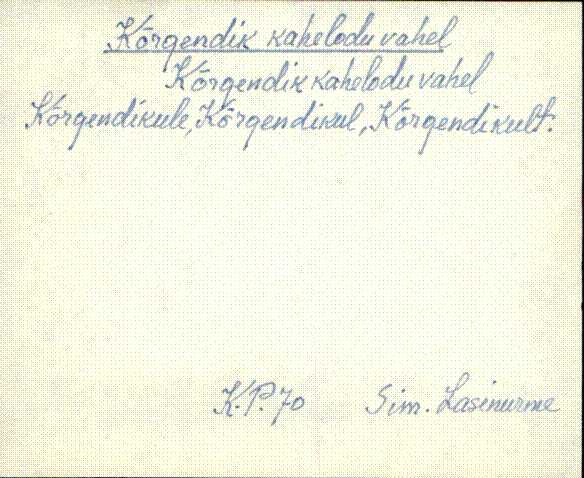 Kõrgendik kahelodu vahel
Kõrgendik kahelodu vahel
Kõrgendikule, Kõrgendikul, Kõrgendikult.
K.P. 70 Sim. Lasinurme